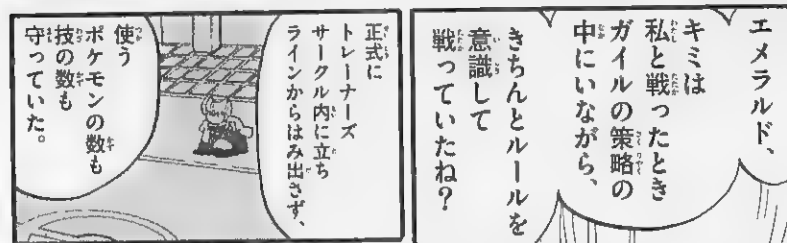 エメラルド、
キミは
私と戦ったとき
ガイルの策略の
中にいながら、
きちんとルールを
意識して
戦っていたね？
正式に
トレーナーズ
サークル内に立ち
ラインからはみ出さず、
使う
ポケモンの数も
技の数も
守っていた。